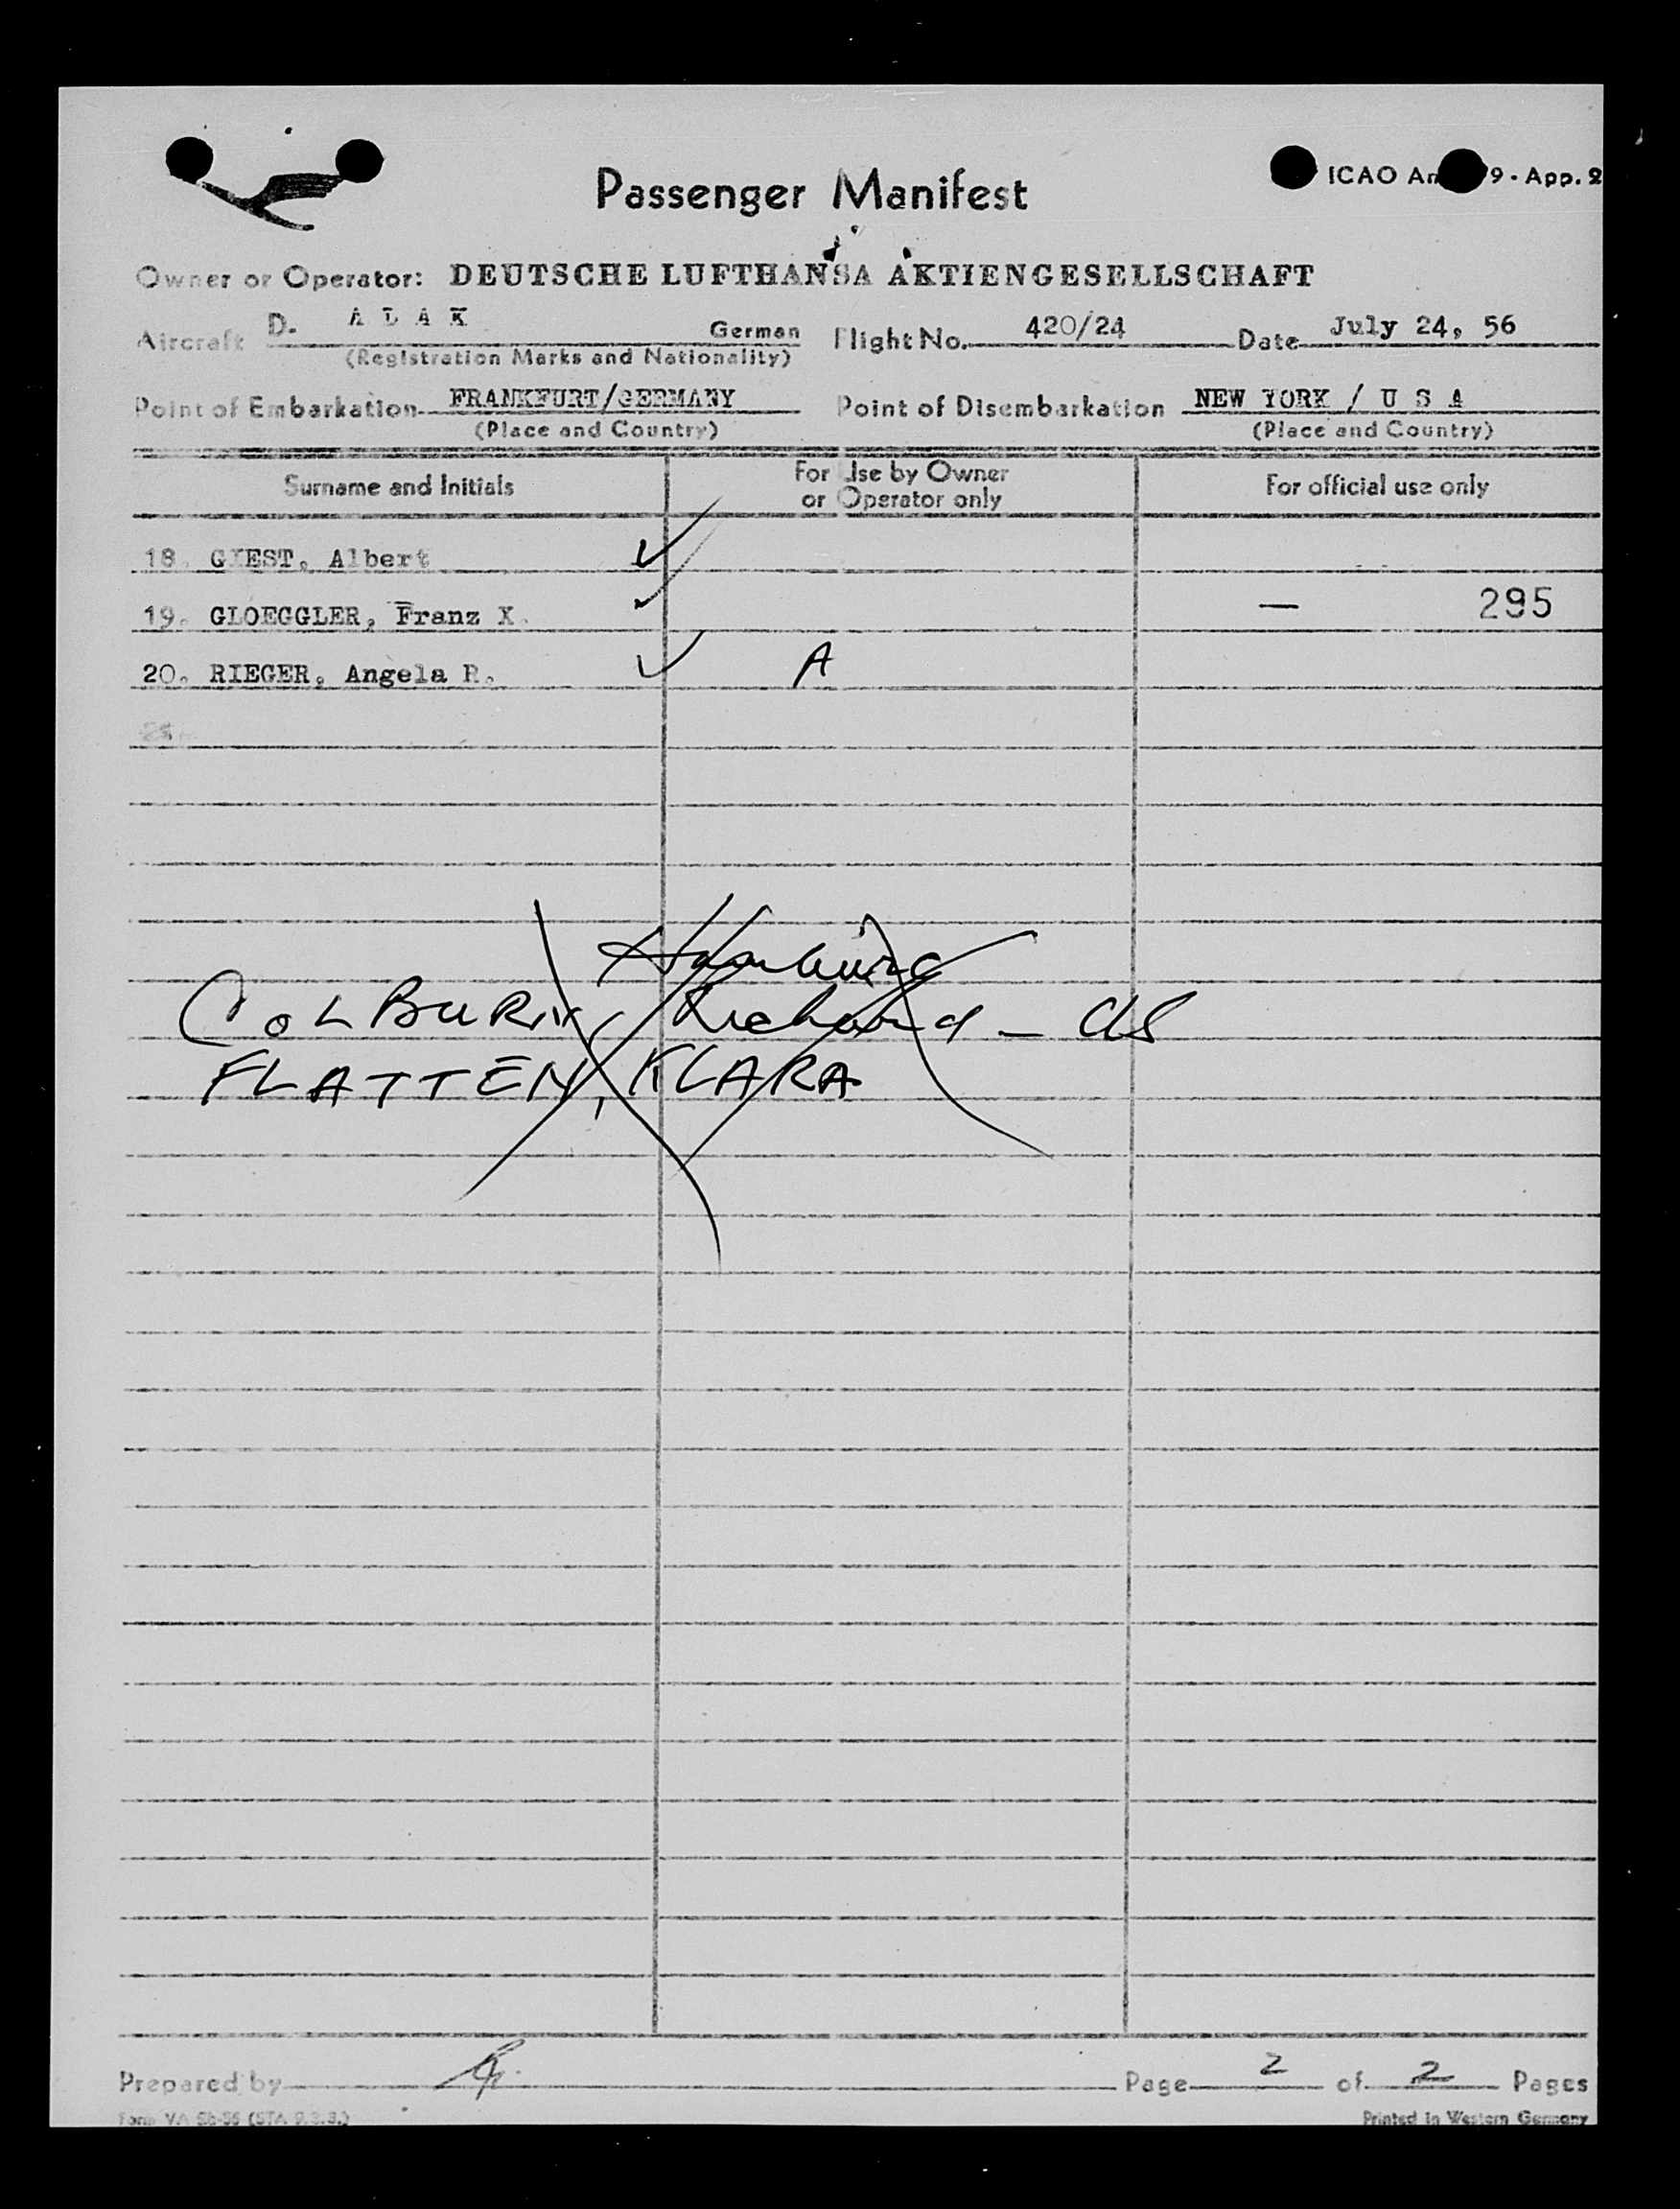 Passenger Manifest
ICAO An 9 - App. 2
Owner or Operator: DEUTSCHE LUFTHANSA AKTIENGESELLSCHAFT
Aircraft D. A L A K German Flight No. 420/24 Date July 24, 56
(Registration Marks and Nationality)
Point of Embarkation FRANKFURT/GERMANY Point of Disembarkation NEW YORK / U S A
(Place and Country) (Place and Country)
Surname and Initials For Use by Owner or Operator only For official use only
18. GIEST, Albert
19. GLOEGGLER, Franz X. — 295
20. RIEGER, Angela R. A
Hamburg
COLBURN, Richard - US
FLATTEN, KLARA
Prepared by Page 2 of 2 Pages
Printed in Western Germany